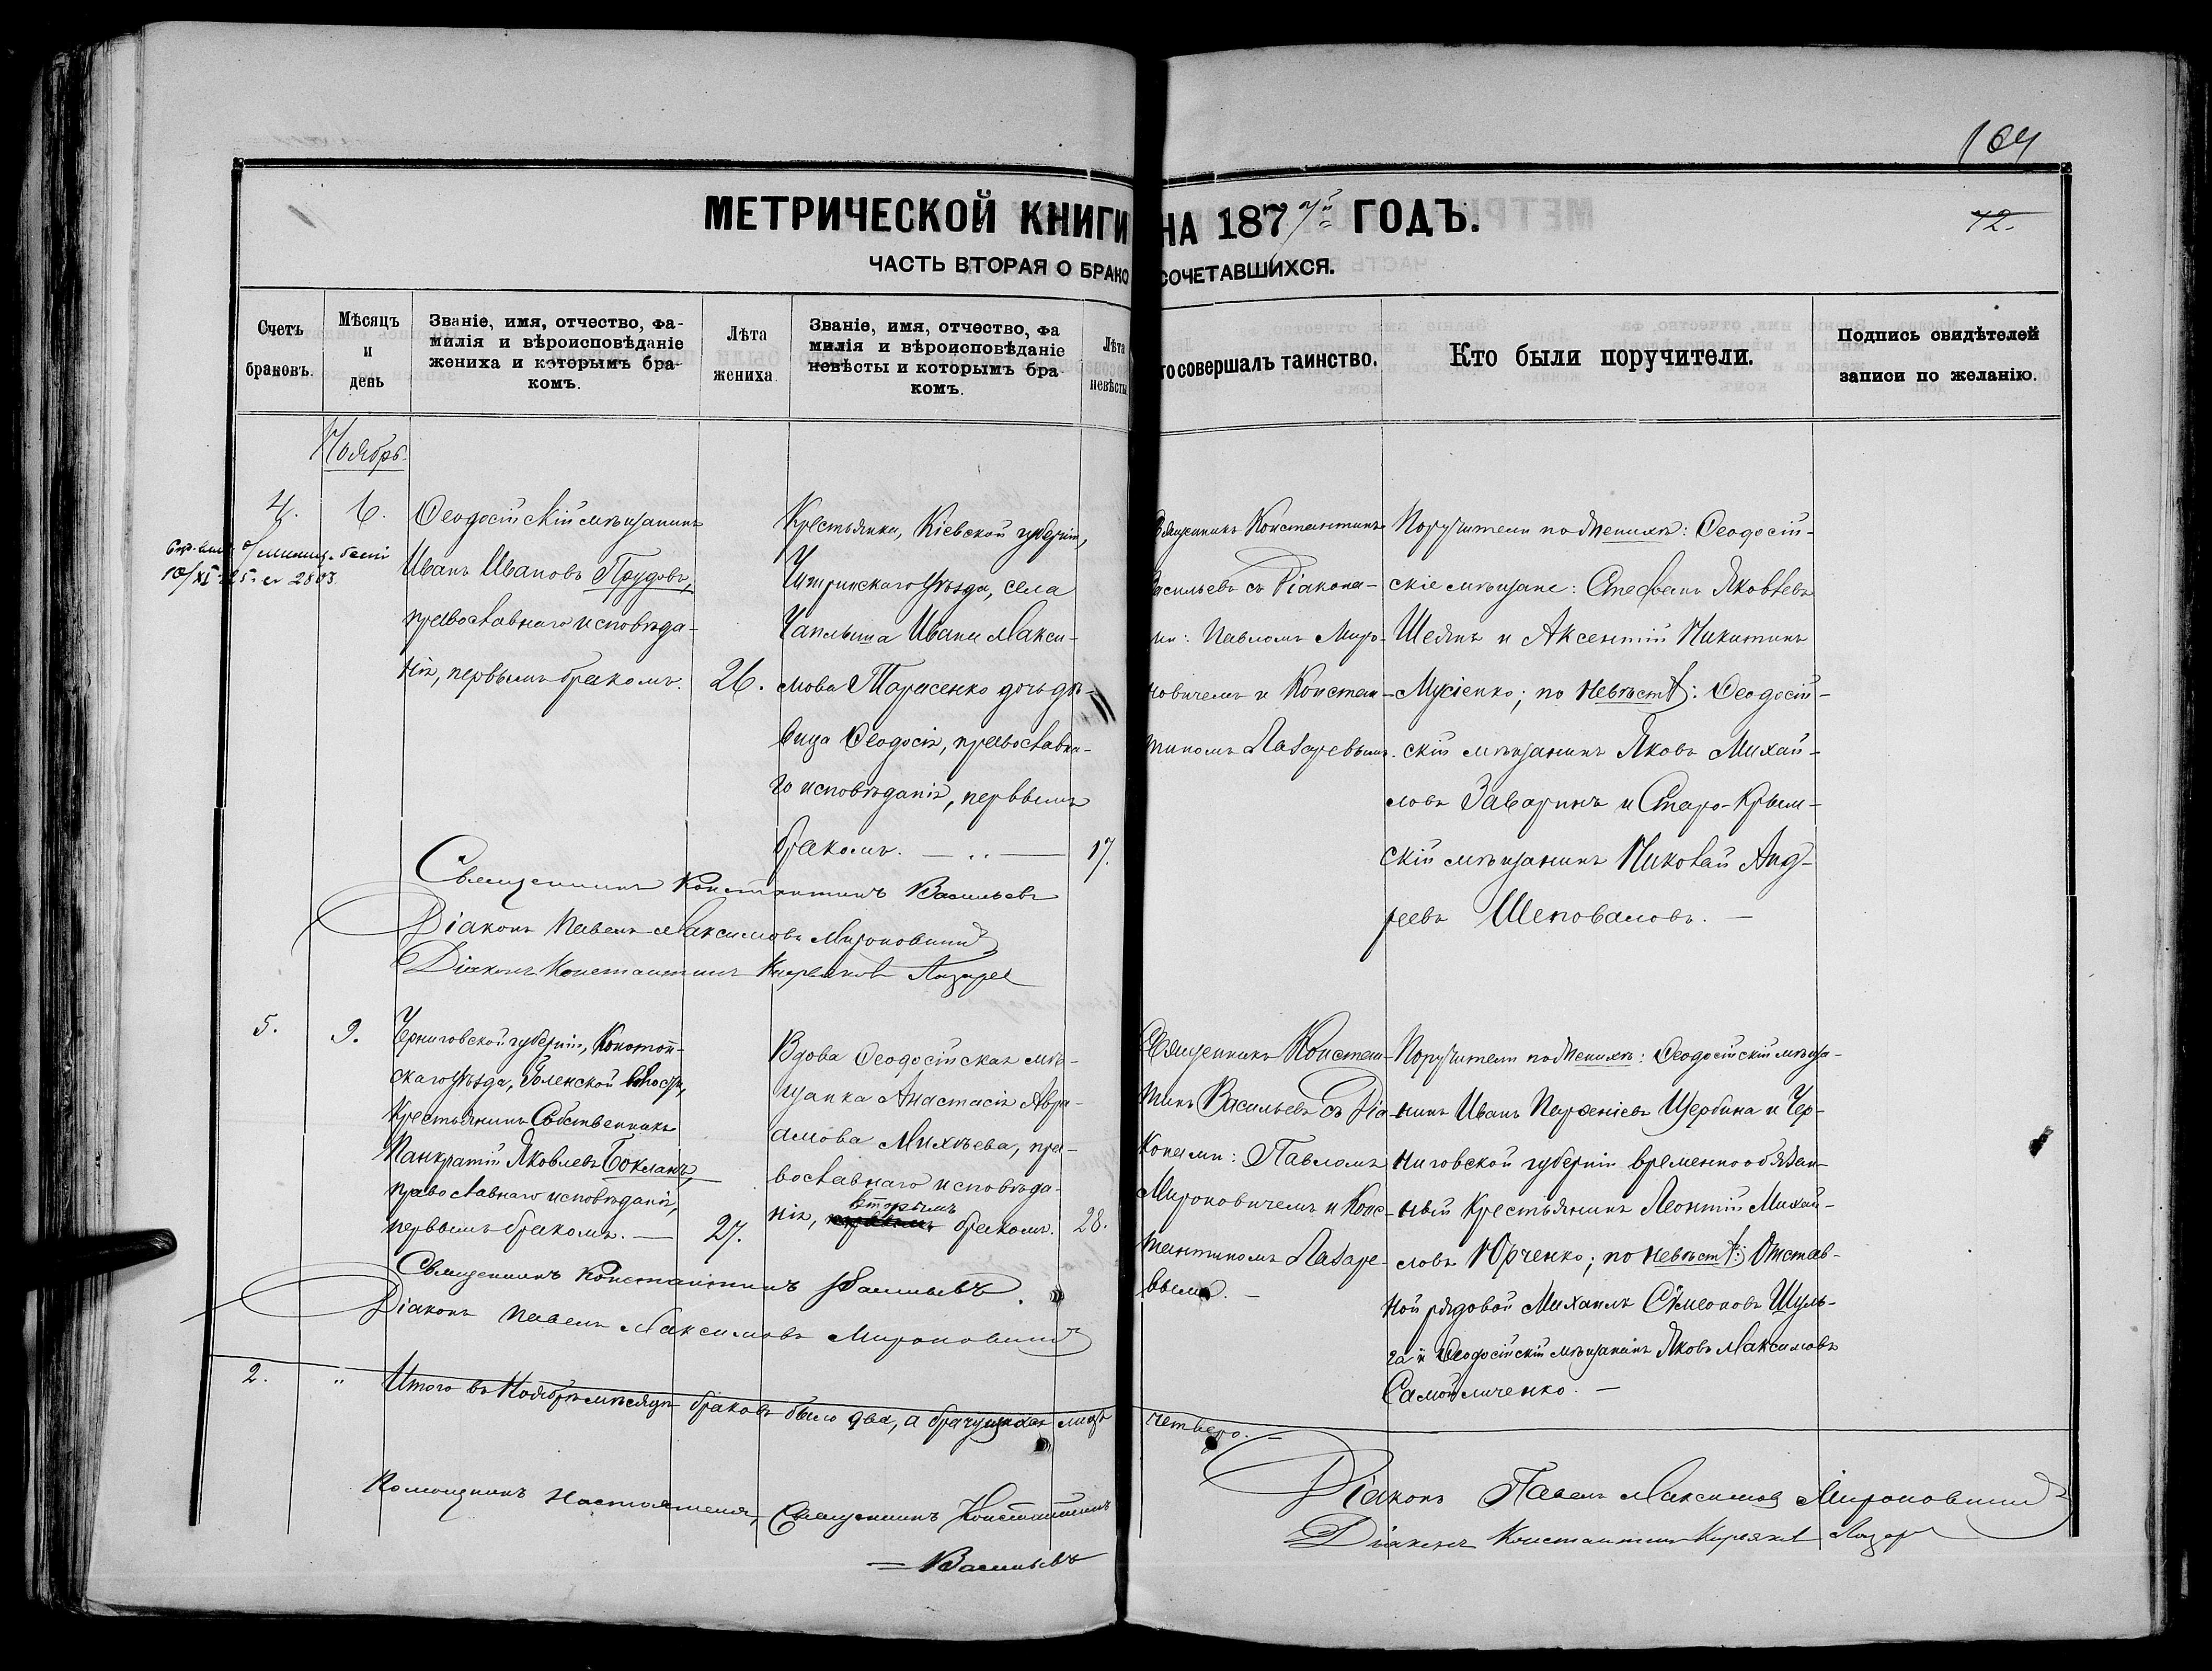 164
МЕТРИЧЕСКОЙ КНИГИ НА 1877й ГОДЪ.
72.
ЧАСТЬ ВТОРАЯ О БРАКОСОЧЕТАВШИХСЯ.
Счетъ браковъ.
Мѣсяцъ и день
Званіе, имя, отчество, фа-
милія и вѣроисповѣданіе
жениха и которымъ бра-
комъ.
Лѣта жениха
Званіе, имя, отчество, фа
милія и вѣроисповѣданіе
невѣсты и которымъ бра
комъ.
Лѣта невѣсты
то совершалъ таинство.
Кто были поручители.
Подпись свидѣтелей
записи по желанію.
Ноябрь
4.
6.
Ѳеодосійскій мѣщанинъ
Иванъ Ивановъ Прудовъ,
православнаго исповѣда-
нія, первымъ бракомъ.
26.
Крестьянки, Кіевской губерніи,
Чигринскаго уѣзда, села
Чаплыща Ивана Макси-
мова Тарасенко дочь дѣ-
вица Ѳеодосія, православна-
го исповѣданія, первымъ
бракомъ.
17.
Священникъ Константинъ
Васильевъ съ Діакона-
ми: Павломъ Миро-
новичемъ и Констан-
тиномъ Лазаревымъ.
Поручители по женихѣ: Ѳеодосій-
скіе мѣщане: Стефанъ Яковлевъ
Шеянъ и Аксентій Никитинъ
Мусіенко; по невѣстѣ: Ѳеодосій-
скій мѣщанинъ Яковъ Михай-
ловъ Заваринъ и Старо-Крым-
скій мѣщанинъ Николай Анд-
реевъ Шеповаловъ. —
10/XI 25 г 2803
Священникъ Константинъ Васильевъ
Діаконъ Павелъ Максимовъ Мироновичъ
Діаконъ Константинъ Киріаковъ Лазаре
5.
9.
Черниговской губерніи, Конотоп-
скаго уѣзда, Голенской волости,
Крестьянинъ Собственникъ
Панкратій Яковлевъ Бокланъ,
православнаго исповѣданія,
первымъ бракомъ. —
27.
Вдова Ѳеодосійская мѣ-
щанка Анастасія Авра-
амова Михѣева, пра-
вославнаго исповѣда-
вторымъ
нія, первымъ бракомъ.
28.
Священникъ Констан-
тинъ Васильевъ съ Діа-
конами: Павломъ
Мироновичемъ и Конс-
тантиномъ Лазаре-
вымъ. —
Поручители по женихѣ: Ѳеодосійскій мѣща-
нинъ Иванъ Парѳеніевъ Щербина и Чер-
ниговской губерніи временнообязан-
ный Крестьянинъ Леонтій Михай-
ловъ Юрченко; по невѣстѣ: Отстав-
ной рядовой Михаилъ Симеоновъ Шуль-
га и Ѳеодосійскій мѣщанинъ Яковъ Максимовъ
Самойличенко. —
Священникъ Константинъ Васильевъ
Діаконъ Павелъ Максимовъ Мироновичъ
2.
"
Итого въ Ноябрѣ мѣсяцѣ браковъ было два, а брачущихся лицъ четверо. —
Помощникъ Настоятеля, Священникъ Константинъ
Васильевъ
Діаконъ Павелъ Максимовъ Мироновичъ
Діаконъ Константинъ Киріаковъ Лазаре